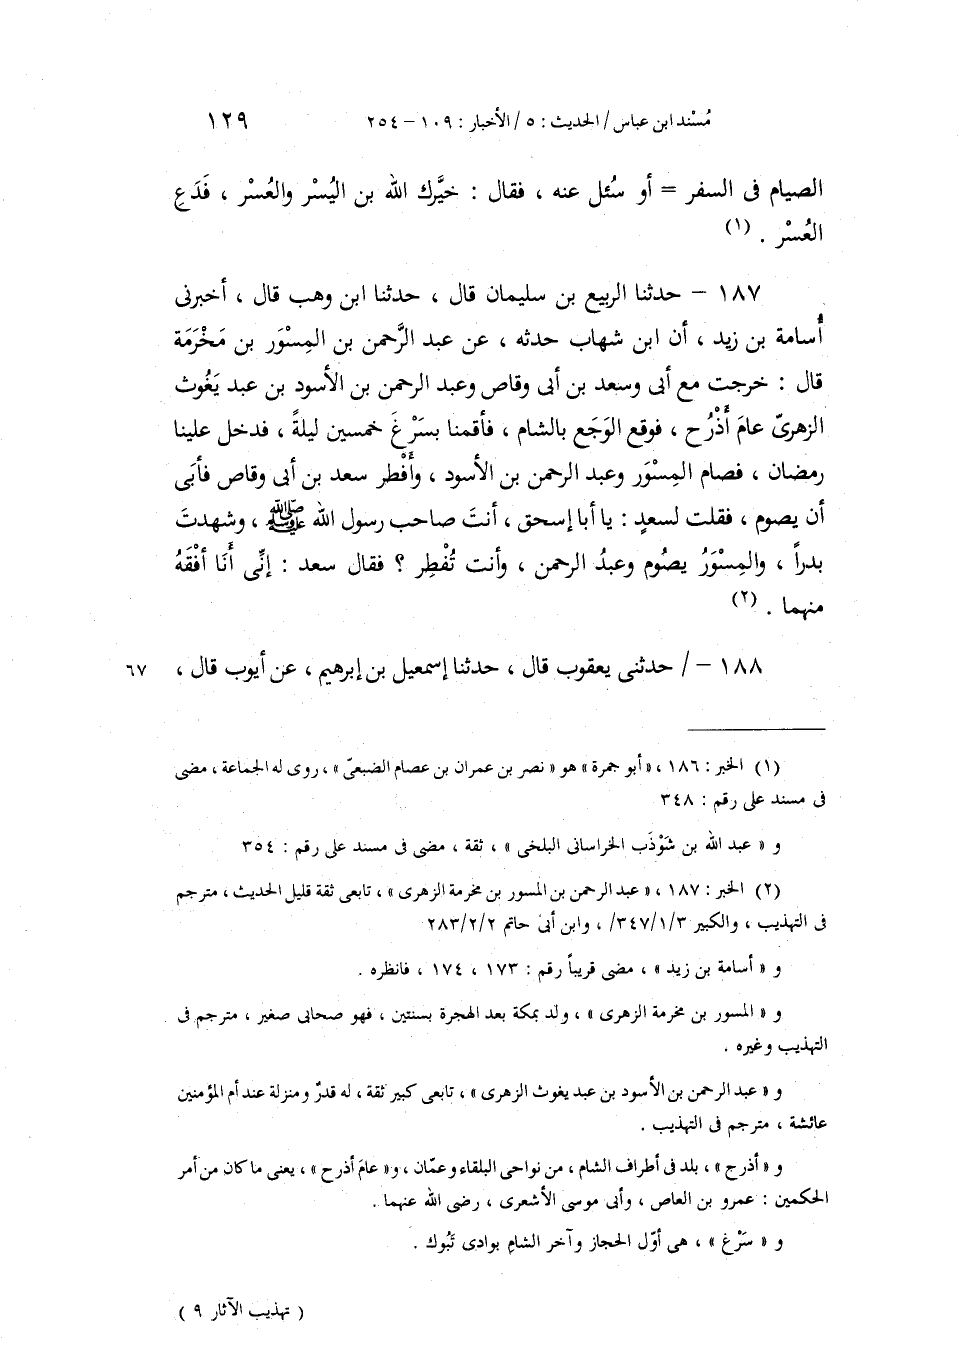 مُسْند ابن عباس / الحديث : ٥ / الأخبار : ١٠٩ – ٢٥٤ ١٢٩
الصيام فى السفر = أو سُئل عنه ، فقال : خيَّرك الله بن اليُسْر والعُسْر ، فَدَعِ
العُسْر . (١)
١٨٧ – حدثنا الربيع بن سليمان قال ، حدثنا ابن وهب قال ، أخبرنى
أُسامة بن زيد ، أن ابن شهاب حدثه ، عن عبد الرَّحمن بن المِسْوَر بن مَخْرَمَة
قال : خرجت مع أبى وسعد بن أبى وقاص وعبد الرحمن بن الأسود بن عبد يَغُوث
الزهرىّ عامَ أَذْرُح ، فوقع الوَجَع بالشام ، فأقمنا بسَرْغَ خمسين ليلةً ، فدخل علينا
رمضان ، فصام المِسْوَر وعبد الرحمن بن الأسود ، وأَفْطر سعد بن أبى وقاص فأبَى
أن يصوم ، فقلت لسعدٍ : يا أبا إسحق ، أنتَ صاحب رسول الله ﷺ ، وشهدتَ
بدراً ، والمِسْوَرُ يصُوم وعبدُ الرحمن ، وأنت تُفْطِر ؟ فقال سعد : إنِّى أَنَا أفْقَهُ
منهما . (٢)
١٨٨ – / حدثنى يعقوب قال ، حدثنا إسمعيل بن إبرهيم ، عن أيوب قال ، ٦٧
(١) الخبر : ١٨٦ ، « أبو جمرة » هو « نصر بن عمران بن عصام الضبعىّ » ، روى له الجماعة ، مضى
فى مسند على رقم : ٣٤٨
و « عبد الله بن شَوْذَب الخراسانى البلخى » ، ثقة ، مضى فى مسند على رقم : ٣٥٤
(٢) الخبر : ١٨٧ ، « عبد الرحمن بن المسور بن مخرمة الزهرى » ، تابعى ثقة قليل الحديث ، مترجم
فى التهذيب ، والكبير ٣٤٧/١/٣/ ، وابن أبى حاتم ٢٨٣/٢/٢
و « أسامة بن زيد » ، مضى قريباً رقم : ١٧٣ ، ١٧٤ ، فانظره .
و « المسور بن مخرمة الزهرى » ، ولد بمكة بعد الهجرة بسنتين ، فهو صحابى صغير ، مترجم فى
التهذيب وغيره .
و « عبد الرحمن بن الأسود بن عبد يغوث الزهرى » ، تابعى كبير ثقة ، له قدرٌ ومنزلة عند أم المؤمنين
عائشة ، مترجم فى التهذيب .
و « أذرح » ، بلد فى أطراف الشام ، من نواحى البلقاء وعمّان ، و« عامَ أذرح » ، يعنى ما كان من أمر
الحكمين : عمرو بن العاص ، وأبى موسى الأشعرى ، رضى الله عنهما .
و « سَرْغ » ، هى أوّل الحجاز وآخر الشام بوادى تَبُوك .
( تهذيب الآثار ٩ )